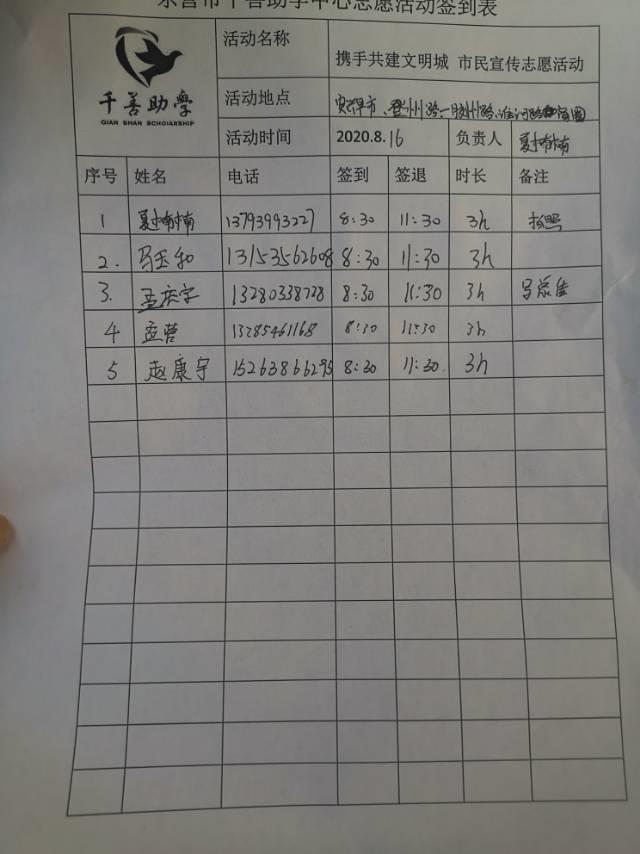 东营市千善助学中心志愿活动签到表
千善助學
QIAN SHAN SCHOLARSHIP
活动名称 携手共建文明城 市民宣传志愿活动
活动地点 登州路一胶州路
活动时间 2020.8.16 负责人 夏楠楠
序号 姓名 电话 签到 签退 时长 备注
1 夏楠楠 13793993227 8:30 11:30 3h 拍照
2. 马玉和 13153562608 8:30 11:30 3h
3. 孟庆宇 13280338728 8:30 11:30 3h
4 孟营 13285461168 8:30 11:30 3h
5 赵康宇 15263866295 8:30 11:30 3h